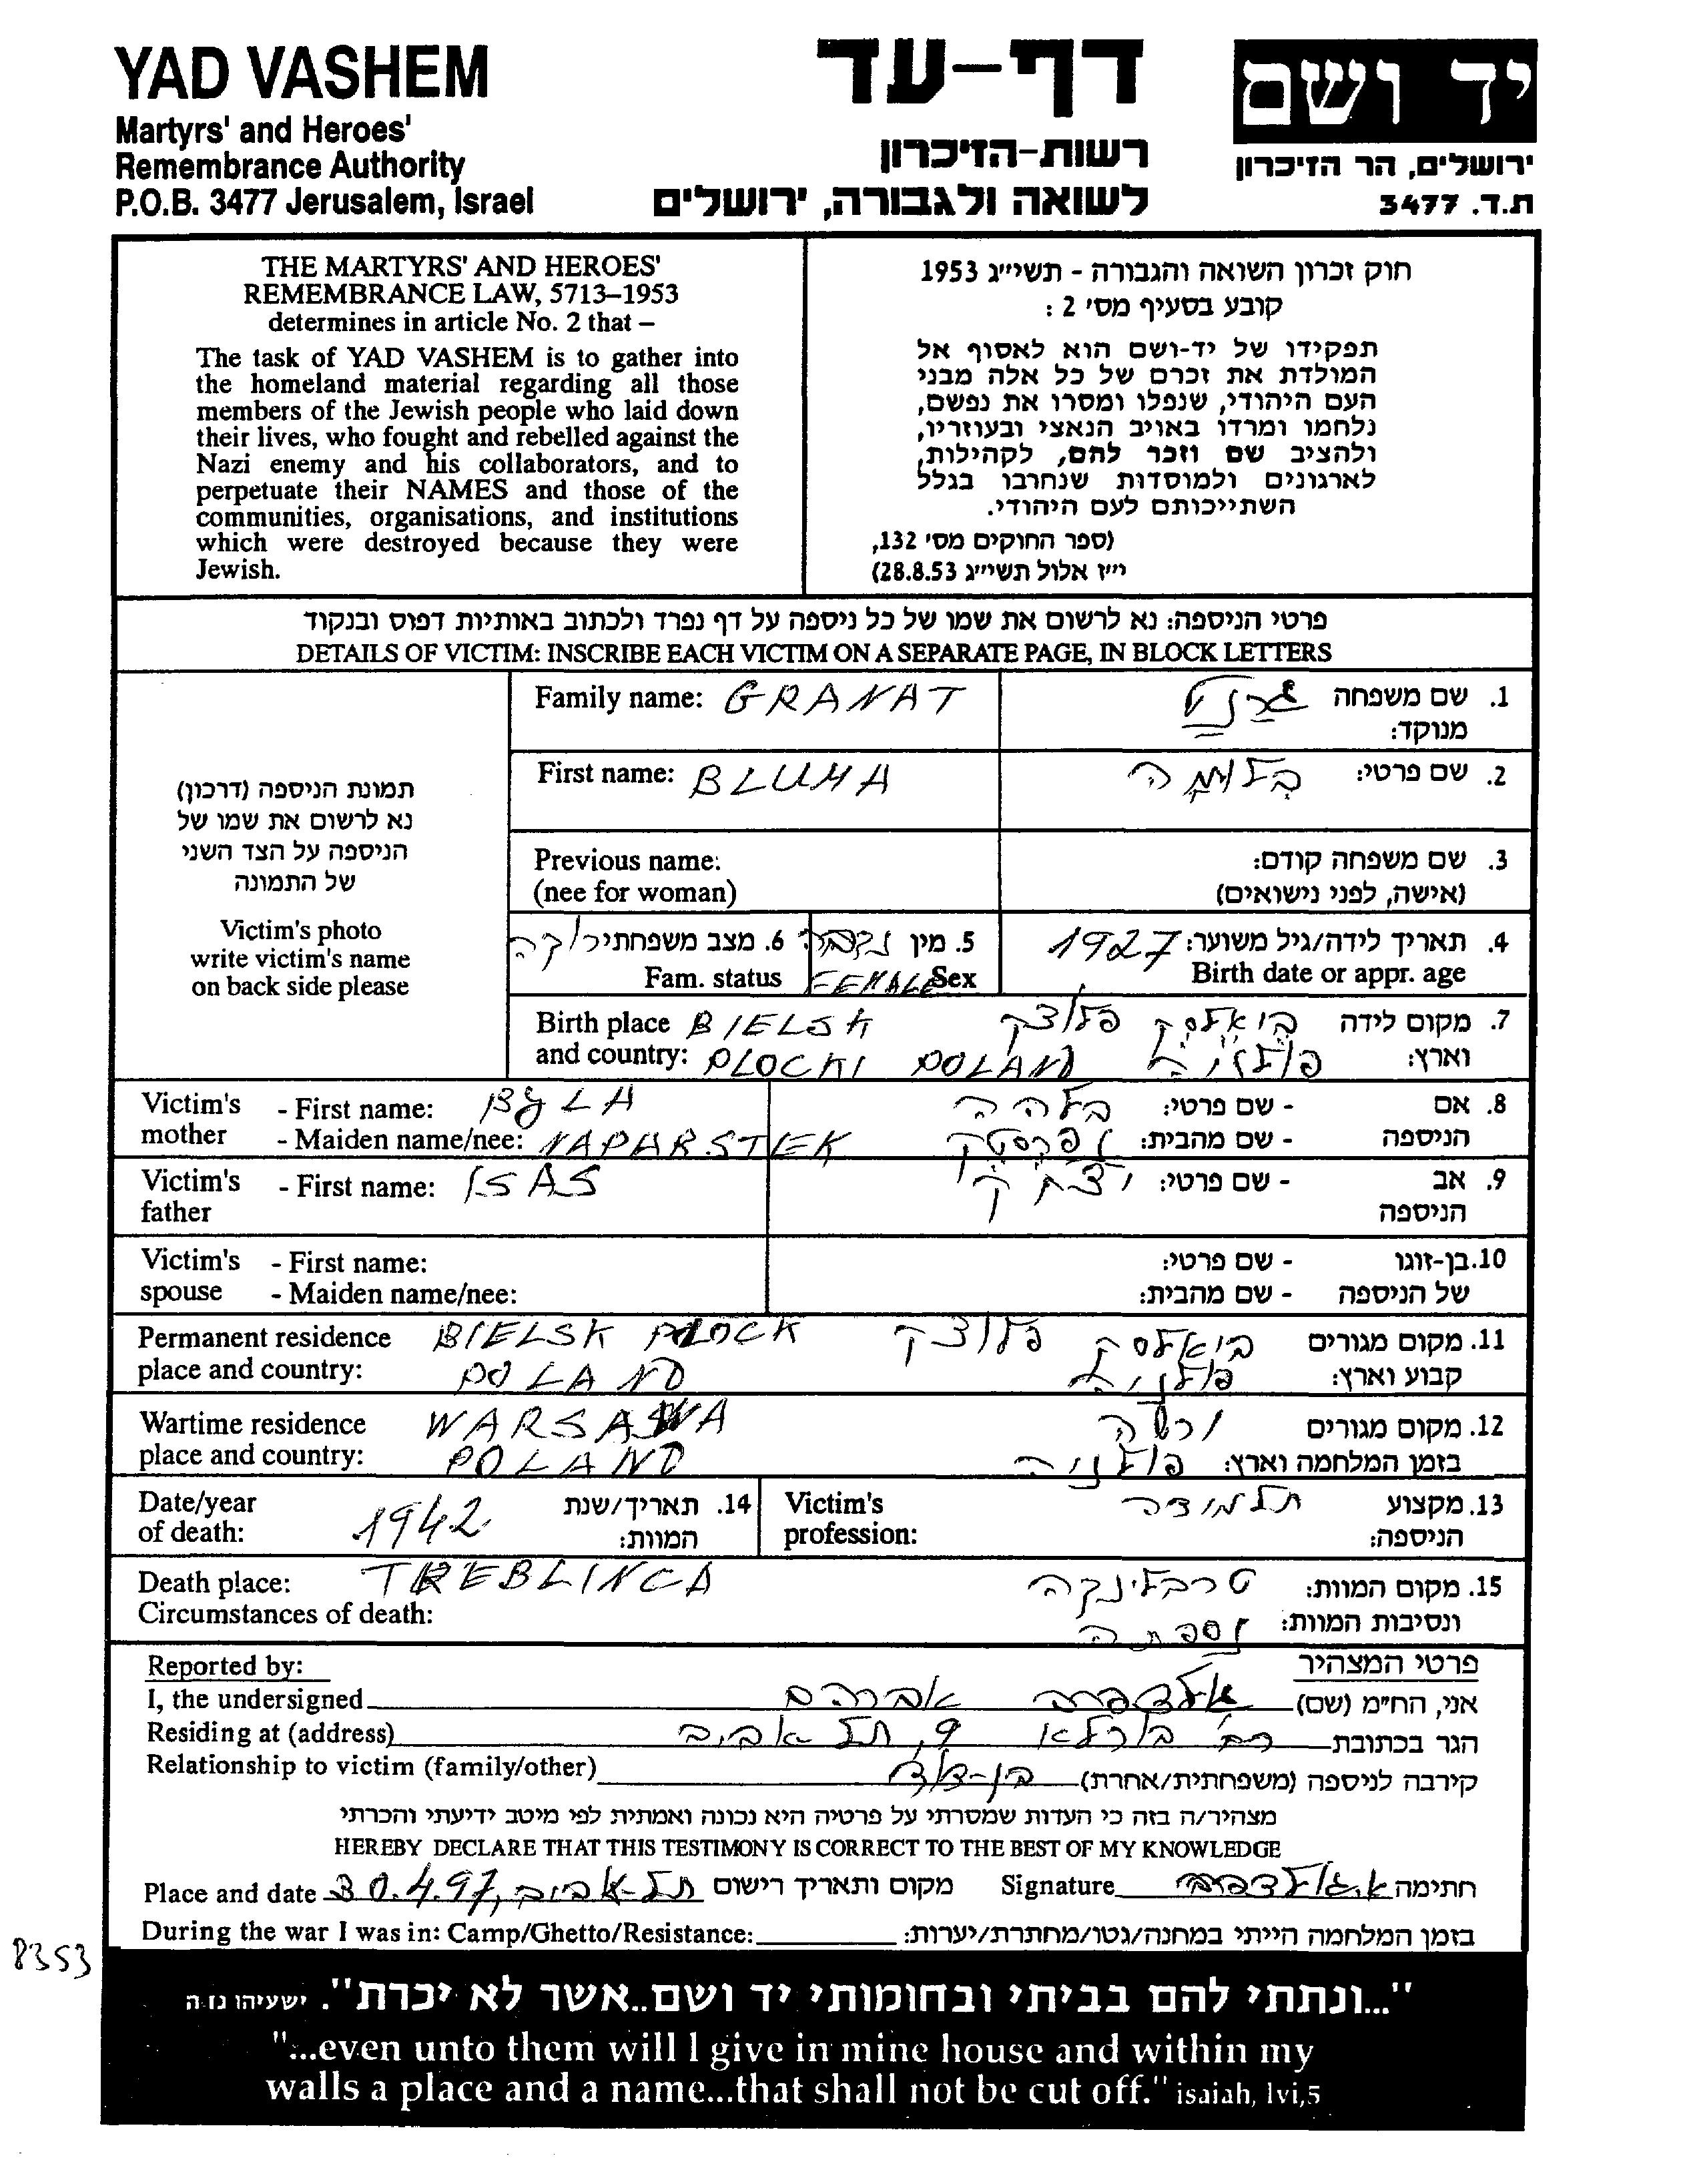 YAD VASHEM
Martyrs' and Heroes'
Remembrance Authority
P.O.B. 3477 Jerusalem, Israel
דף-עד
רשות-הזיכרון
לשואה ולגבורה, ירושלים
יד ושם
ירושלים, הר הזיכרון
ת.ד. 3477
THE MARTYRS' AND HEROES'
REMEMBRANCE LAW, 5713–1953
determines in article No. 2 that –
The task of YAD VASHEM is to gather into
the homeland material regarding all those
members of the Jewish people who laid down
their lives, who fought and rebelled against the
Nazi enemy and his collaborators, and to
perpetuate their NAMES and those of the
communities, organisations, and institutions
which were destroyed because they were
Jewish.
חוק זכרון השואה והגבורה - תשי״ג 1953
קובע בסעיף מס׳ 2 :
תפקידו של יד-ושם הוא לאסוף אל
המולדת את זכרם של כל אלה מבני
העם היהודי, שנפלו ומסרו את נפשם,
נלחמו ומרדו באויב הנאצי ובעוזריו,
ולהציב שם וזכר להם, לקהילות,
לארגונים ולמוסדות שנחרבו בגלל
השתייכותם לעם היהודי.
(ספר החוקים מס׳ 132,
י״ז אלול תשי״ג 28.8.53)
פרטי הניספה: נא לרשום את שמו של כל ניספה על דף נפרד ולכתוב באותיות דפוס ובנקוד
DETAILS OF VICTIM: INSCRIBE EACH VICTIM ON A SEPARATE PAGE, IN BLOCK LETTERS
תמונת הניספה (דרכון)
נא לרשום את שמו של
הניספה על הצד השני
של התמונה
Victim's photo
write victim's name
on back side please
Family name: GRANAT
1. שם משפחה גרנט
מנוקד:
First name: BLUMA
2. שם פרטי: בלומה
Previous name:
(nee for woman)
3. שם משפחה קודם:
(אישה, לפני נישואים)
4. תאריך לידה/גיל משוער: 1927
Birth date or appr. age
5. מין נקבה
FEMALE Sex
6. מצב משפחתי רווקה
Fam. status
Birth place BIELSK
and country: PLOCKI POLAND
7. מקום לידה ביאלסק פלוצק
וארץ: פולניה
Victim's mother - First name: BYLA
- Maiden name/nee: NAPARSTEK
8. אם הניספה - שם פרטי: בלהה
- שם מהבית: נפרסטק
Victim's father - First name: ISAS
9. אב הניספה - שם פרטי: יצחק
Victim's spouse - First name:
- Maiden name/nee:
10. בן-זוגו של הניספה - שם פרטי:
- שם מהבית:
Permanent residence BIELSK PLOCK
place and country: POLAND
11. מקום מגורים ביאלסק פלוצק
קבוע וארץ: פולניה
Wartime residence WARSAWA
place and country: POLAND
12. מקום מגורים ורשה
בזמן המלחמה וארץ: פולניה
Date/year
of death: 1942
14. תאריך/שנת
המוות:
Victim's
profession:
13. מקצוע תלמידה
הניספה:
Death place: TREBLINCA
Circumstances of death:
15. מקום המוות: טרבלינקה
ונסיבות המוות: נספתה
Reported by:
פרטי המצהיר
I, the undersigned
אני, החי״מ (שם) אברהם
Residing at (address)
הגר בכתובת רח׳ בורלא 9, תל אביב
Relationship to victim (family/other)
קירבה לניספה (משפחתית/אחרת) בן-דוד
מצהיר/ה בזה כי העדות שמסרתי על פרטיה היא נכונה ואמתית לפי מיטב ידיעתי והכרתי
HEREBY DECLARE THAT THIS TESTIMONY IS CORRECT TO THE BEST OF MY KNOWLEDGE
Place and date 30.4.97, תל-אביב מקום ותאריך רישום
Signature חתימה
During the war I was in: Camp/Ghetto/Resistance:
בזמן המלחמה הייתי במחנה/גטו/מחתרת/יערות:
8353
"...ונתתי להם בביתי ובחומותי יד ושם..אשר לא יכרת". ישעיהו נו.ה
"...even unto them will I give in mine house and within my
walls a place and a name...that shall not be cut off." isaiah, lvi,5